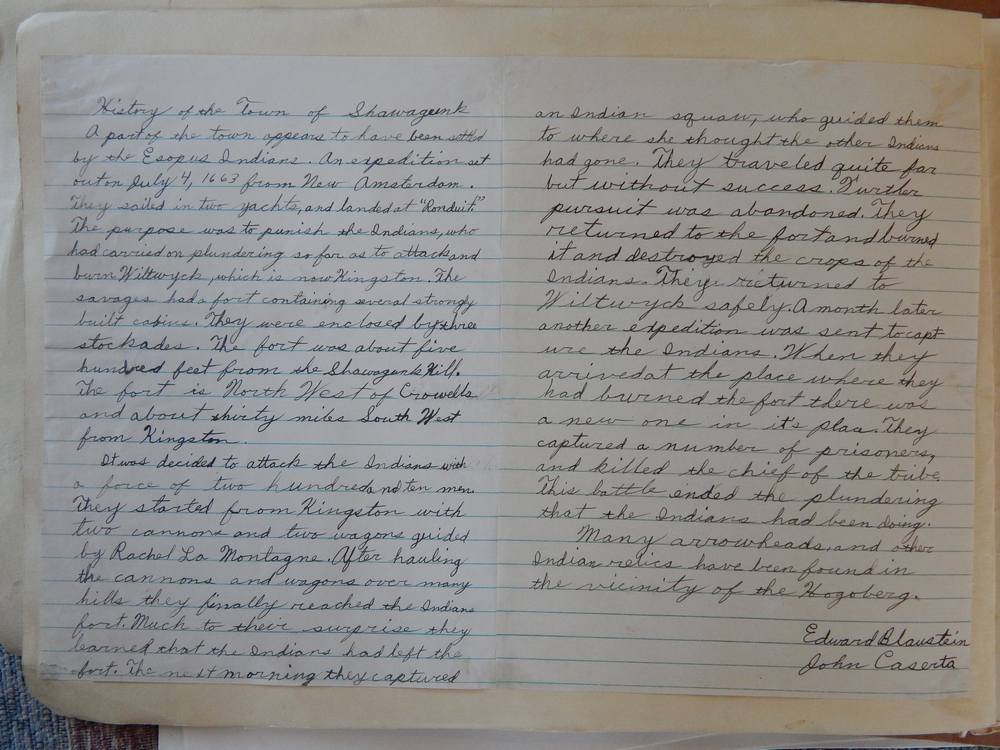 History of the Town of Shawagunk
A part of the town appears to have been settled
by the Esopus Indians. An expedition set
out on July 4, 1663 from New Amsterdam.
They sailed in two yachts, and landed at "Ronduit."
The purpose was to punish the Indians, who
had carried on plundering so far as to attack and
burn Wiltwyck, which is now Kingston. The
savages had a fort containing several strongly
built cabins. They were enclosed by three
stockades. The fort was about five
hundred feet from the Shawagunk Kill.
The fort is North West of Crowells
and about thirty miles South West
from Kingston.
It was decided to attack the Indians with
a force of two hundred and ten men.
They started from Kingston with
two cannons and two wagons guided
by Rachel La Montagne. After hauling
the cannons and wagons over many
hills they finally reached the Indians
fort. Much to their surprise they
learned that the Indians had left the
fort. The next morning they captured
an Indian squaw, who guided them
to where she thought the other Indians
had gone. They traveled quite far
but without success. Further
pursuit was abandoned. They
returned to the fort and burned
it and destroyed the crops of the
Indians. They returned to
Wiltwyck safely. A month later
another expedition was sent to capt
ure the Indians. When they
arrived at the place where they
had burned the fort there was
a new one in it's place. They
captured a number of prisoners,
and killed the chief of the tribe.
This battle ended the plundering
that the Indians had been doing.
Many arrowheads, and other
Indian relics have been found in
the vicinity of the Hogoberg.
Edward Blaustein
John Caserta